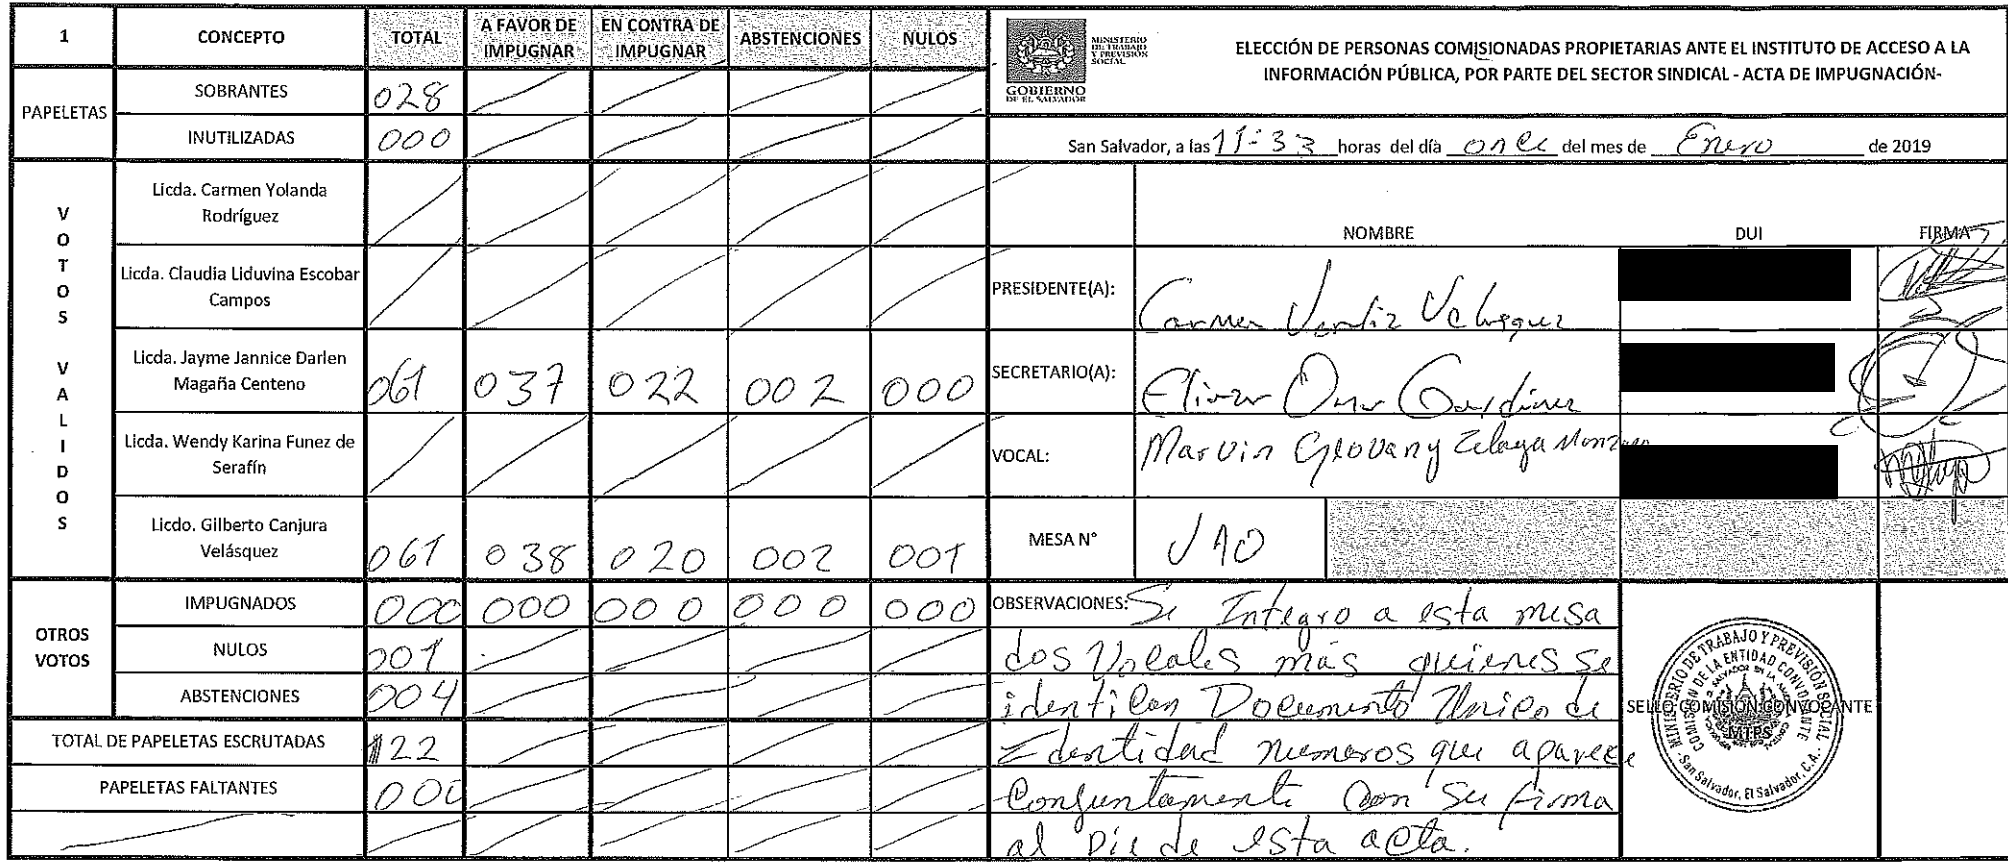 1 CONCEPTO TOTAL A FAVOR DE IMPUGNAR EN CONTRA DE IMPUGNAR ABSTENCIONES NULOS
PAPELETAS
SOBRANTES 028
INUTILIZADAS 000
VOTOS VALIDOS
Licda. Carmen Yolanda
Rodríguez
Licda. Claudia Liduvina Escobar
Campos
Licda. Jayme Jannice Darlen
Magaña Centeno
061 037 022 002 000
Licda. Wendy Karina Funez de
Serafín
Licdo. Gilberto Canjura
Velásquez
061 038 020 002 001
OTROS
VOTOS
IMPUGNADOS 000 000 000 000 000
NULOS 001
ABSTENCIONES 004
TOTAL DE PAPELETAS ESCRUTADAS 122
PAPELETAS FALTANTES 000
MINISTERIO
DE TRABAJO
Y PREVISIÓN
SOCIAL
GOBIERNO
DE EL SALVADOR
ELECCIÓN DE PERSONAS COMISIONADAS PROPIETARIAS ANTE EL INSTITUTO DE ACCESO A LA
INFORMACIÓN PÚBLICA, POR PARTE DEL SECTOR SINDICAL - ACTA DE IMPUGNACIÓN-
San Salvador, a las 11:33 horas del día once del mes de Enero de 2019
NOMBRE DUI FIRMA
PRESIDENTE(A): Carmen
SECRETARIO(A):
VOCAL: Marvin Geovany Zelaya
MESA N°
OBSERVACIONES: Se Integro a esta mesa
dos Vocales más quienes se
identifican Documento Unico de
Identidad numeros que aparece
Conjuntamente con su firma
al pie de esta acta.
SELLO COMISIÓN CONVOCANTE
MINISTERIO DE TRABAJO Y PREVISIÓN SOCIAL
COMISIÓN DE LA ENTIDAD CONVOCANTE
MTPS
San Salvador, El Salvador, C.A.